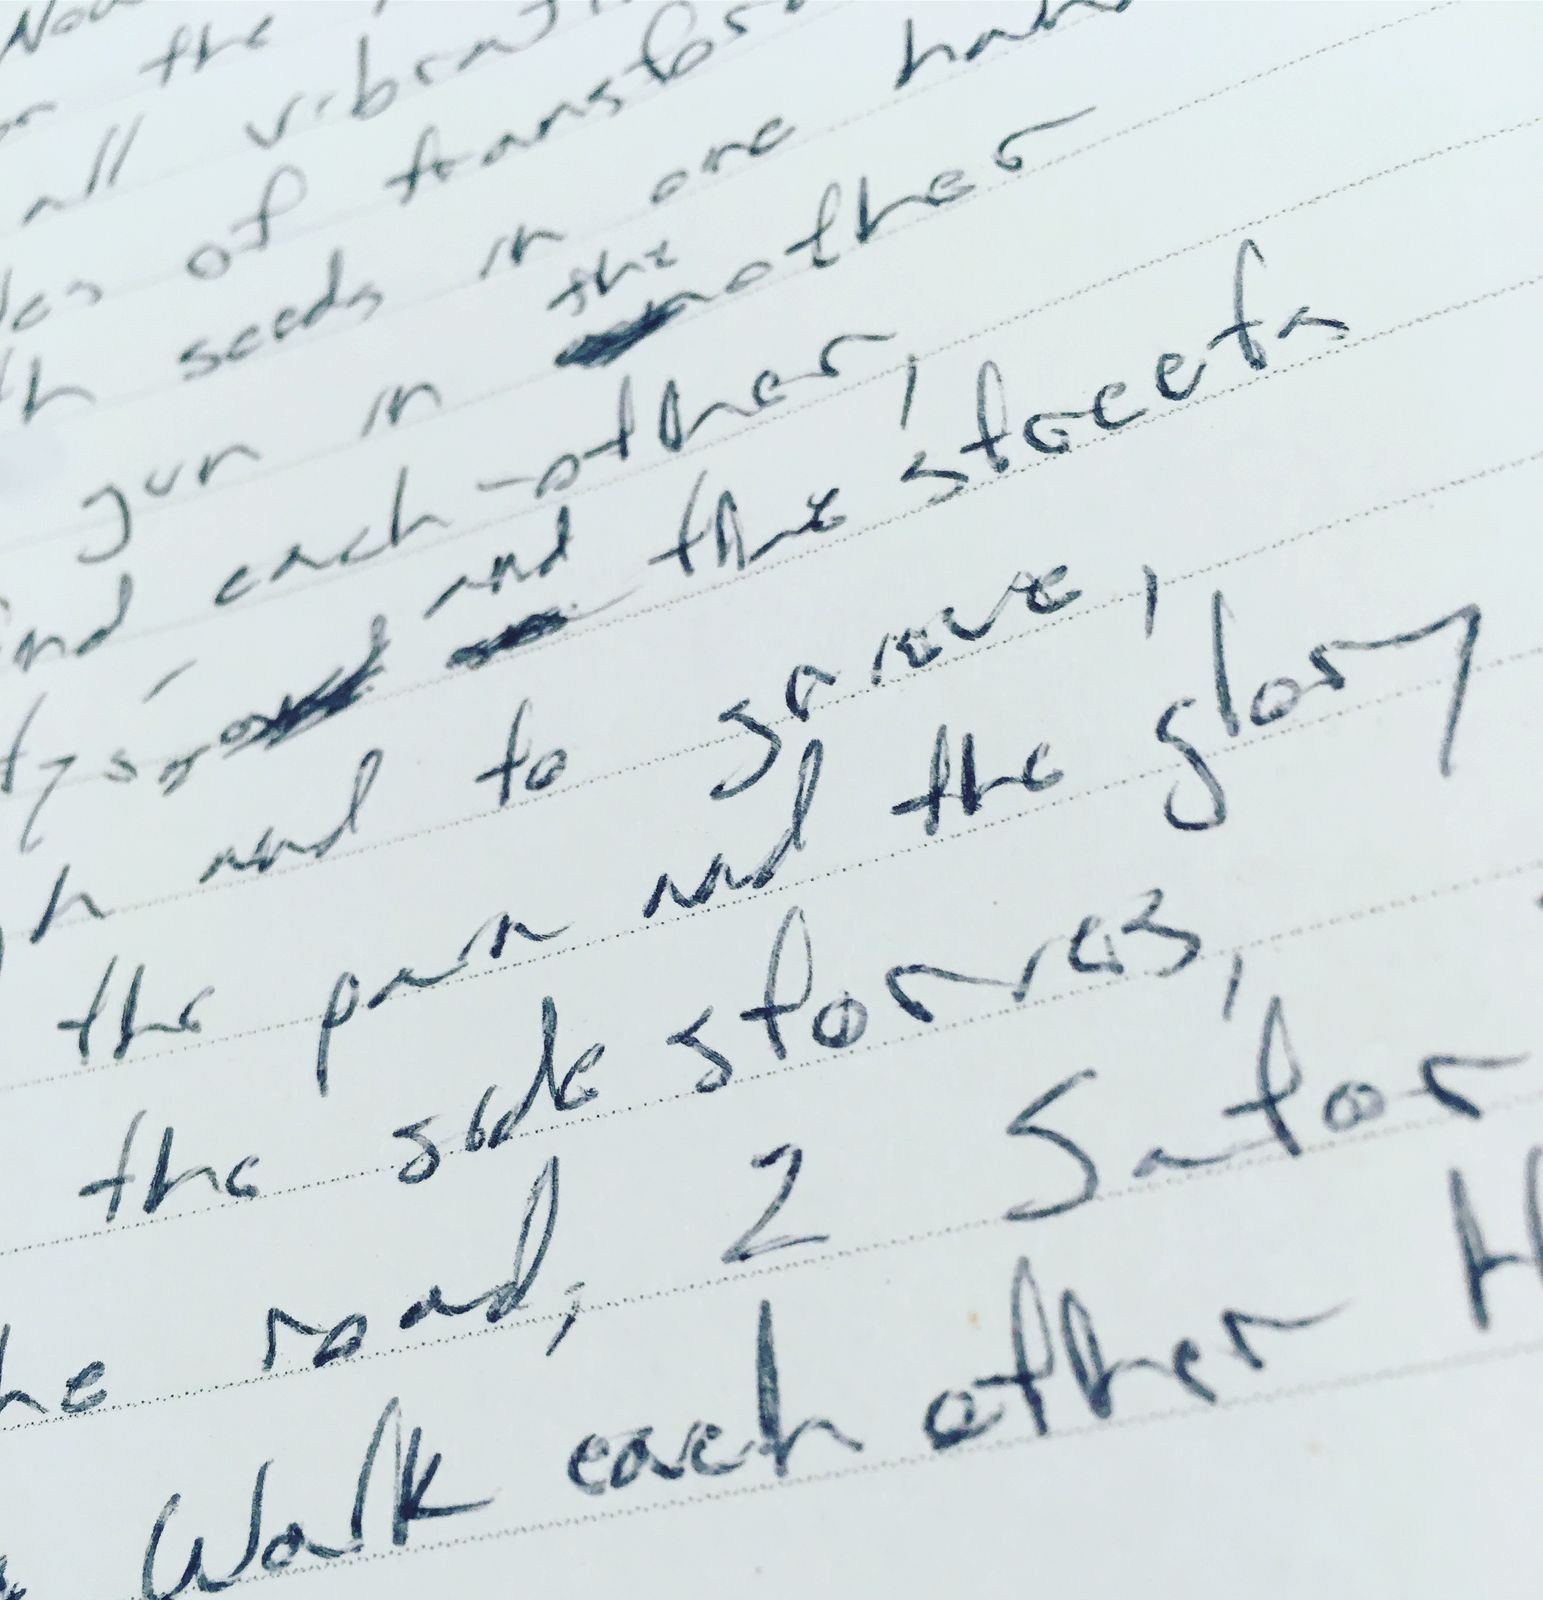 the
all vibrat
of transfor
seeds in one han
gun in the other
each-other,
and the streets
h and to grieve,
the pain and the glory
the side stories,
he road, 2 Sator
Walk each other H